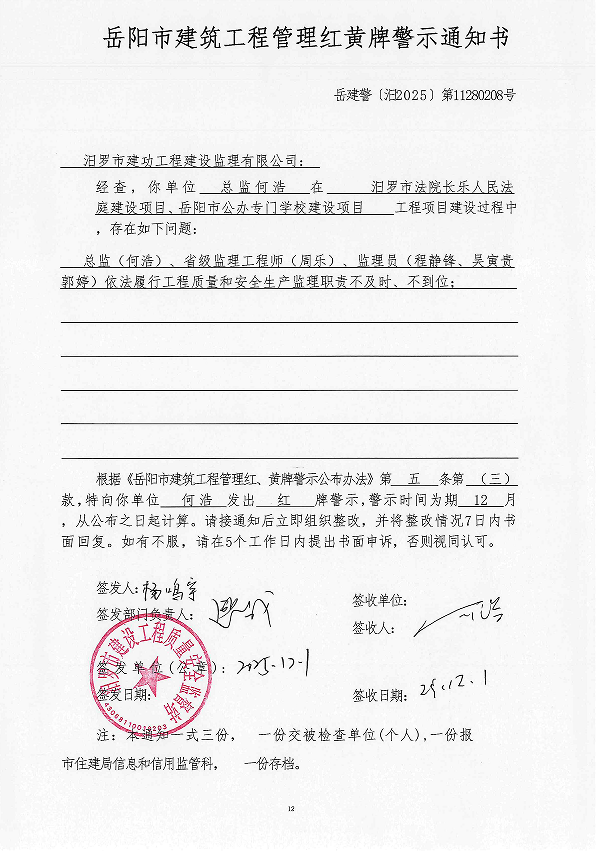 岳阳市建筑工程管理红黄牌警示通知书
岳建警〔汨2025〕第11280208号
汨罗市建功工程建设监理有限公司：
经查，你单位 总监何浩 在 汨罗市法院长乐人民法
庭建设项目、岳阳市公办专门学校建设项目 工程项目建设过程中
，存在如下问题：
总监（何浩）、省级监理工程师（周乐）、监理员（程静锋、吴寅贵
郭婷）依法履行工程质量和安全生产监理职责不及时、不到位；
根据《岳阳市建筑工程管理红、黄牌警示公布办法》第 五 条第 （三）
款，特向你单位 何浩 发出 红 牌警示，警示时间为期 12 月
，从公布之日起计算。请接通知后立即组织整改，并将整改情况7日内书
面回复。如有不服，请在5个工作日内提出书面申诉，否则视同认可。
签发人：杨鸣宇
签发部门负责人：
签发单位（公章）：2025.12.1
签发日期：
签收单位：
签收人：
签收日期：25.12.1
汨罗市建设工程质量安全监督站
注：本通知一式三份， 一份交被检查单位(个人)，一份报
市住建局信息和信用监管科， 一份存档。
12